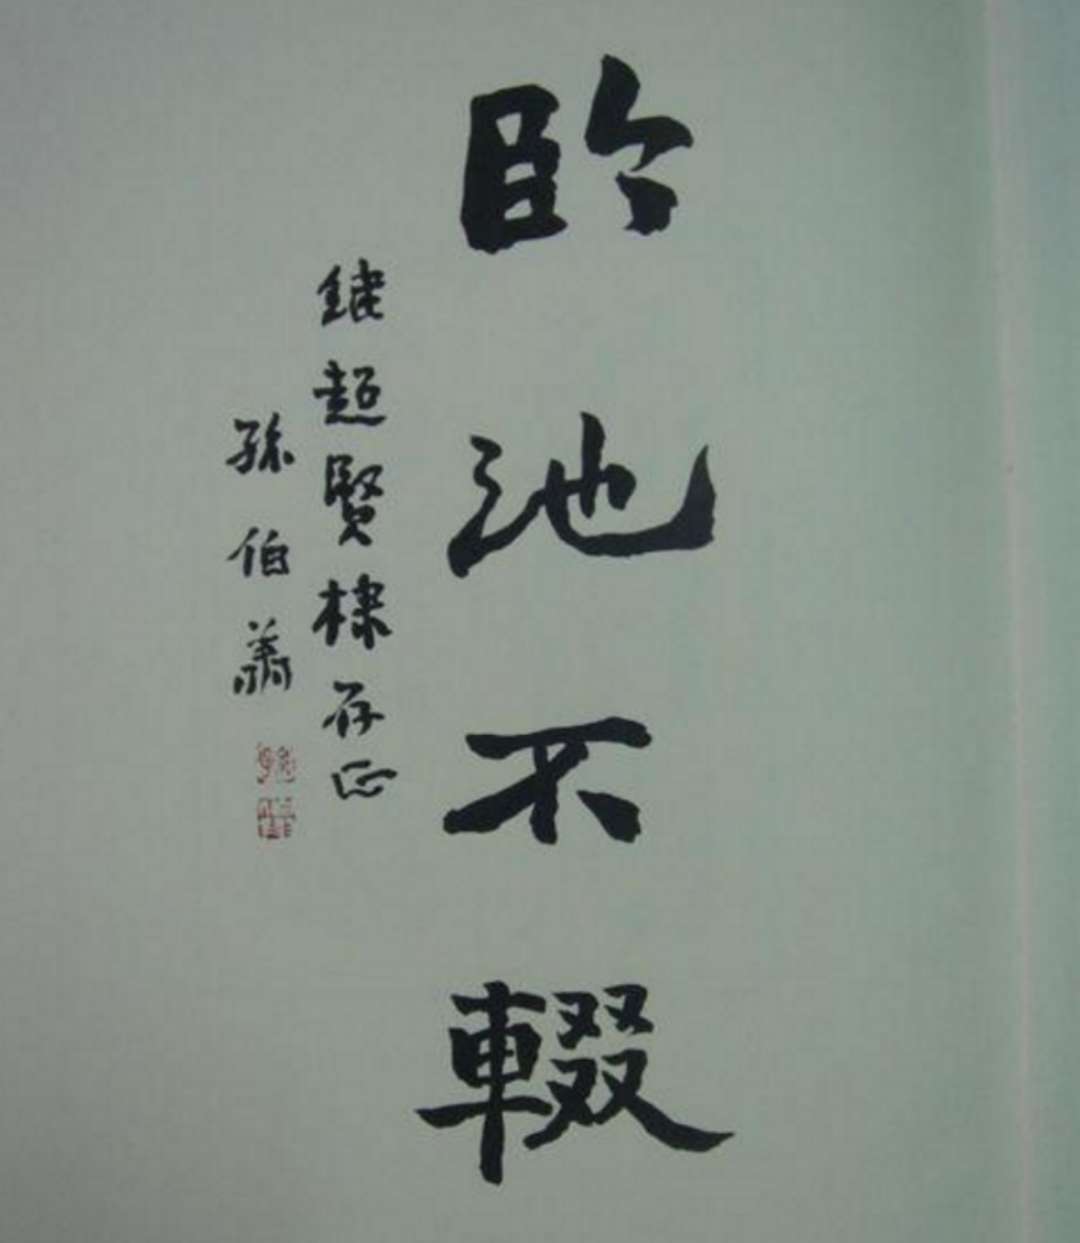 臨池不輟
超賢棣存正
孫伯翔